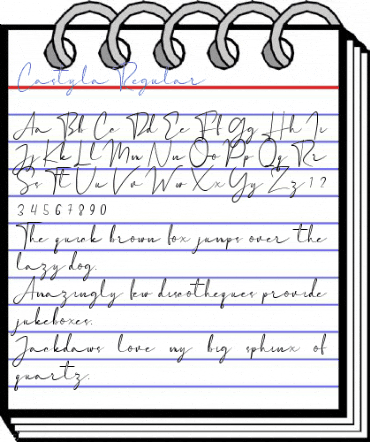 Castyla Regular
Aa Bb Cc Dd Ee Ff Gg Hh Ii
Jj Kk Ll Mm Nn Oo Pp Qq Rr
Ss Tt Uu Vv Ww Xx Yy Zz 1 2
3 4 5 6 7 8 9 0
The quick brown fox jumps over the
lazy dog.
Amazingly few discotheques provide
jukeboxes.
Jackdaws love my big sphinx of
quartz.